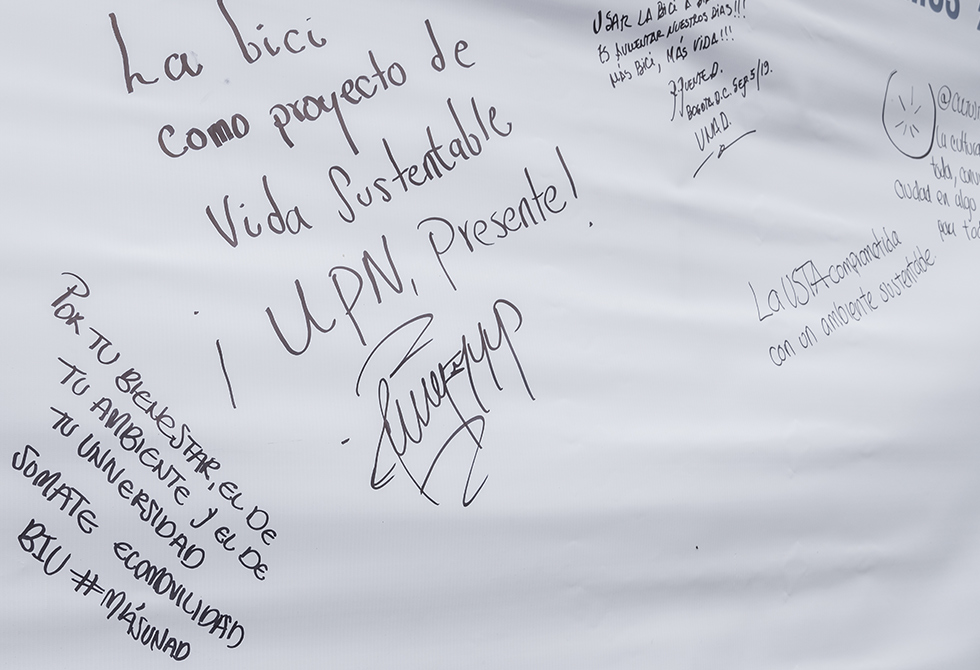 La bici
como proyecto de
Vida Sustentable
¡UPN, Presente!
USAR LA BICI A
ES AUMENTAR NUESTROS DÍAS!!!
MÁS BICI, MÁS VIDA!!!
BOGOTÁ D.C. SEP 5/19.
la cultura
toda,
ciudad en algo
para
La USTA comprometida
con un ambiente sustentable.
POR TU BIENESTAR, EL DE
TU AMBIENTE Y EL DE
TU UNIVERSIDAD
SÚMATE ECOMOVILIDAD
BIU #MÁSUNAD